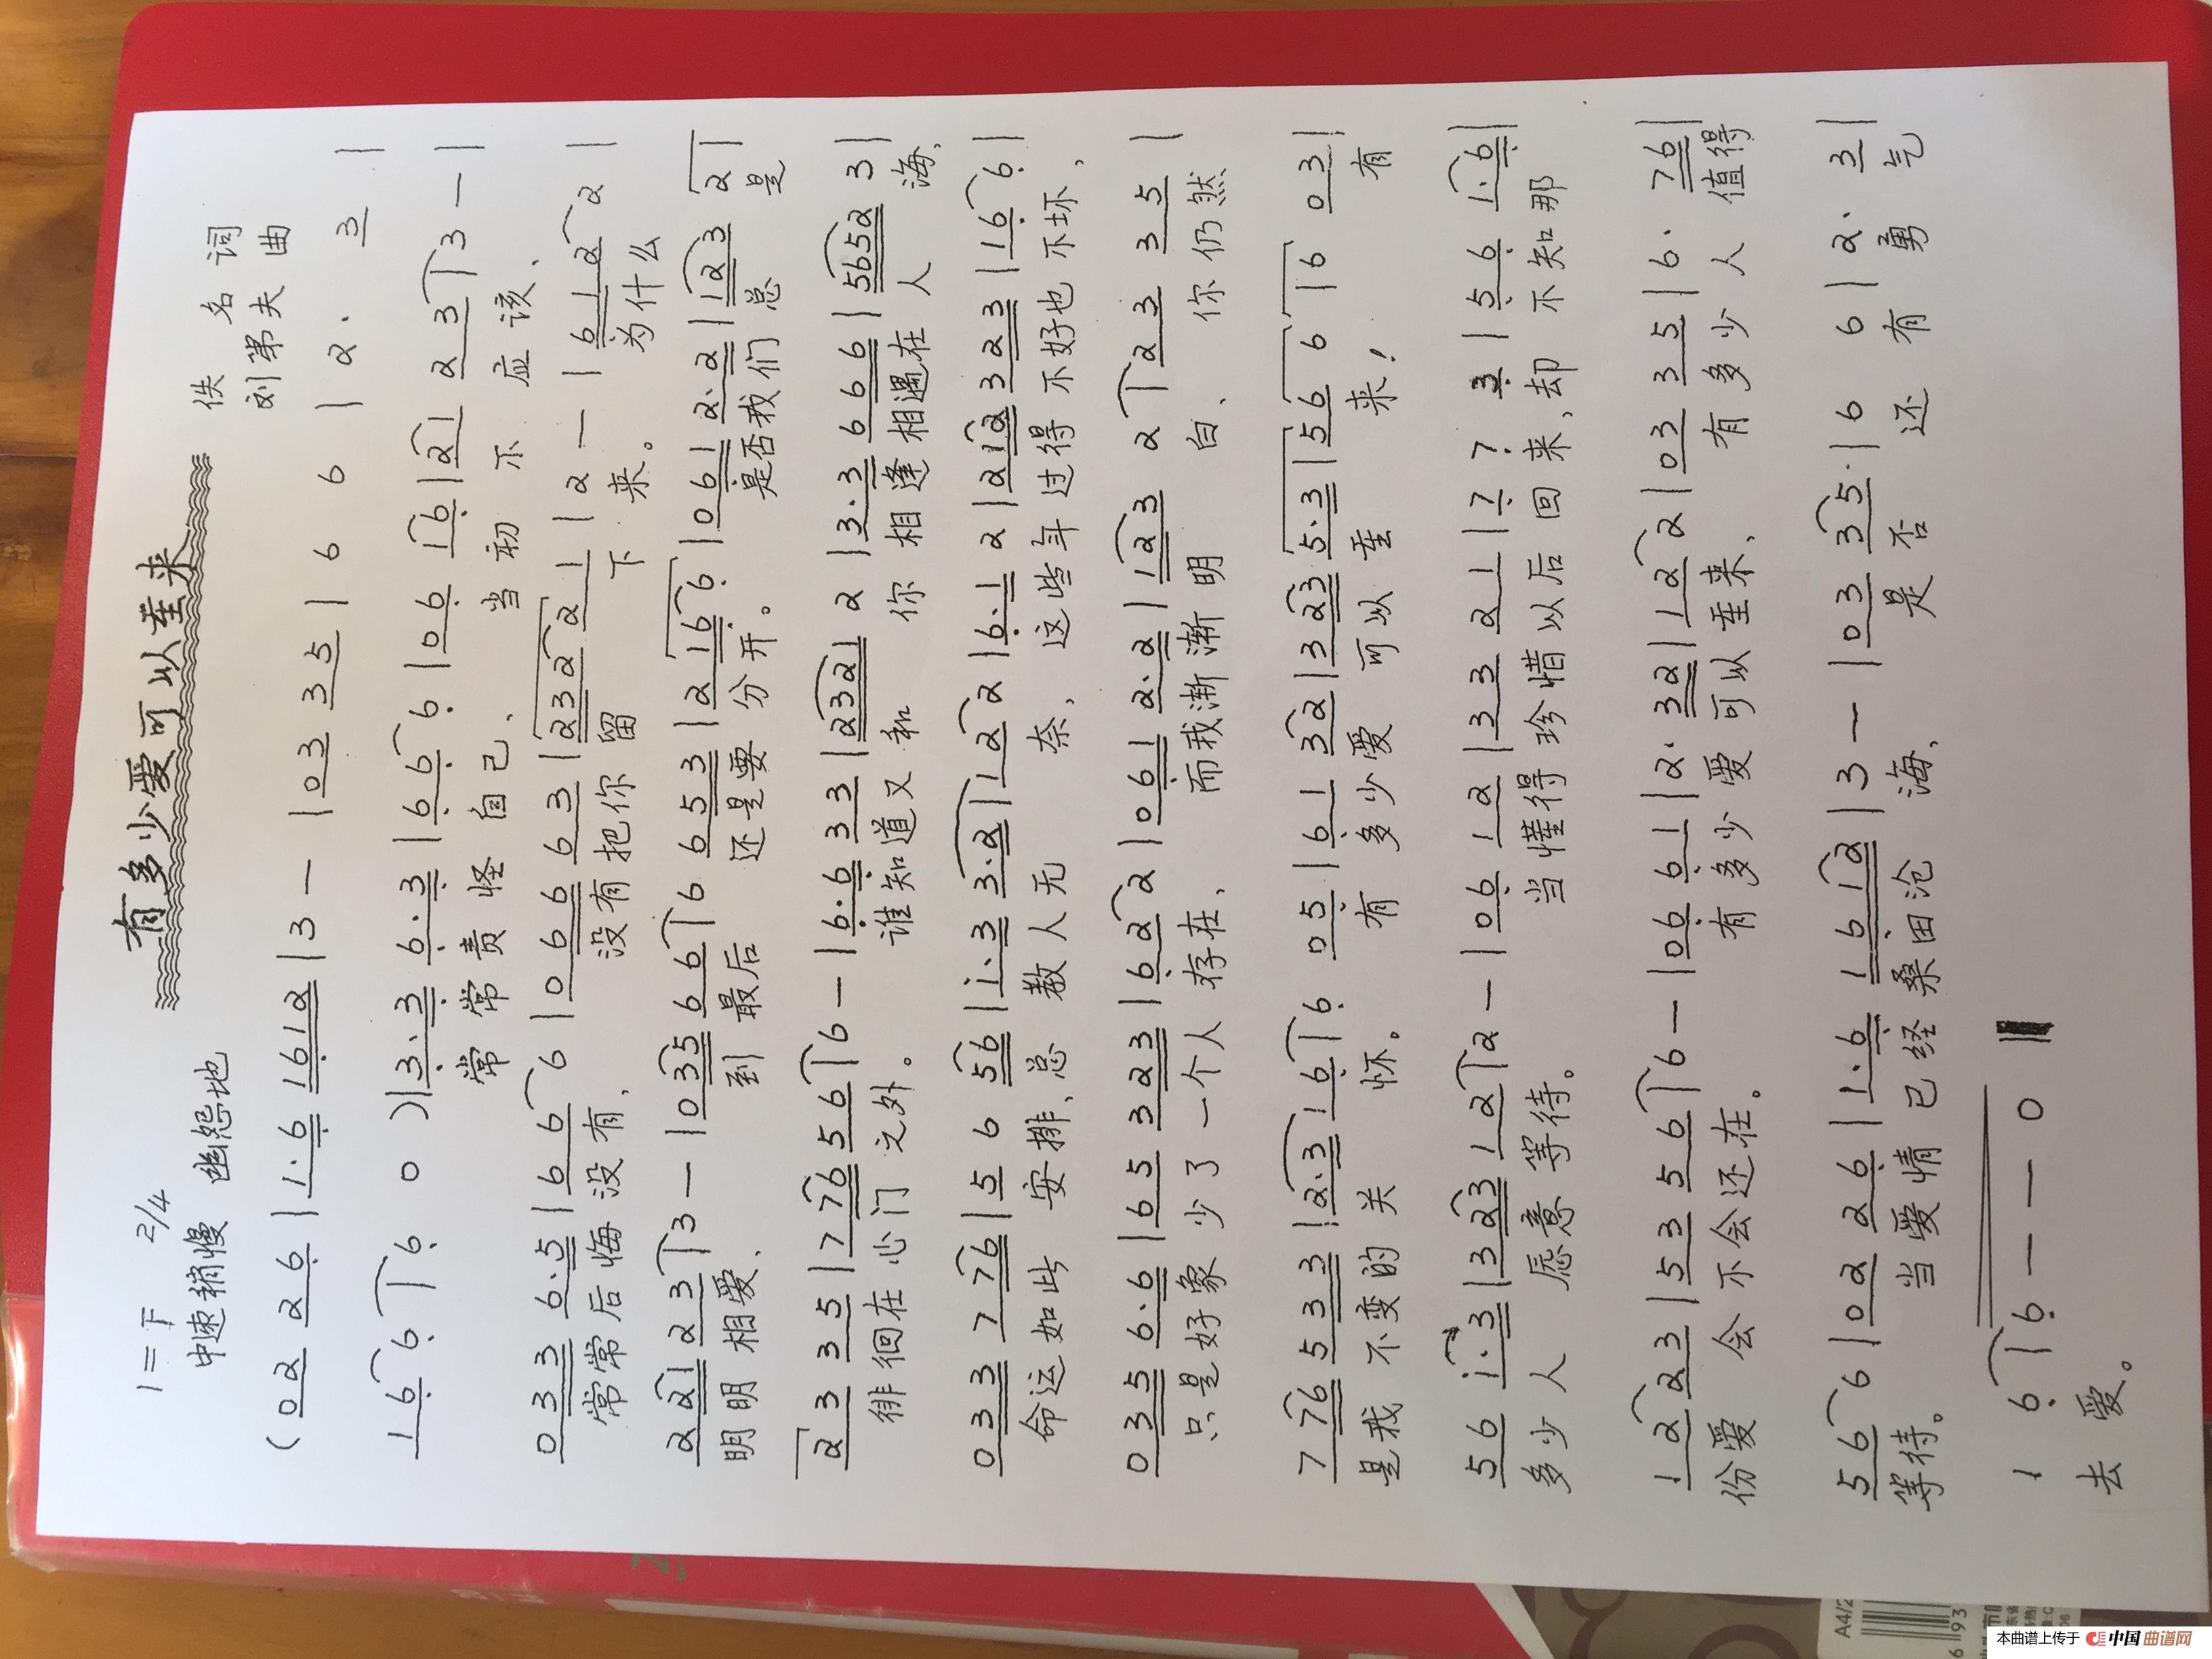 有多少爱可以重来
1=F 2/4
中速稍慢 幽怨地
佚 名 词
刘第夫 曲
(02 26 | 1·6 1612 | 3 — | 03 35 | 6 6 | 2· 3 |
16 6 | 6 0 ) | 3·3 6·3 | 66 6 | 06 16 | 21 23 | 3 — |
常 常 责 怪 自己、 当 初 不 应 该、
033 6·5 | 66 6 | 066 63 | 232 21 | 2 — | 61 2 2 |
常常后悔没有, 没有把你 留 下 来。 为什么
2221 23 | 3 — | 035 66 | 6 653 | 216 6 | 061 2·2 | 123 2 |
明明 相爱、 到 最后 还是要 分开。 是否我们 总 是
23 35 | 776 56 | 6 — | 6·6 33 | 2321 2 | 3·3 666 | 5652 3 |
徘徊在 心门之外。 谁知道又 和 你 相逢相遇在 人 海、
033 776 | 56 56 | i·3 3·2 | 12 2 | 6·1 2 | 212 323 | 16 6 |
命运如此 安排、总 教人无 奈、 这些年过得不好也不坏,
035 6·6 | 65 323 | 62 2 | 061 2·2 | 123 2 | 23 35 |
只是好象 少了一个人 存在、 而我渐渐明 白、 你仍然
776 533 | 2·3 16 | 6 05 | 61 32 | 323 5·3 | 56 6 | 6 03 |
是我 不变的 关 怀。 有 多少爱 可以 重 来! 有
56 i·3 | 323 12 | 2 — | 06 12 | 33 21 | 7 7 3 | 56 16 |
多少人 愿意 等待。 当懂得 珍惜以后回来,却 不知那
12 23 | 53 56 | 6 — | 06 61 | 2· 32 | 12 2 | 03 35 | 6· 76 |
份爱 会 不会还在。 有多少爱可以重来、 有多少人 值得
56 6 | 02 26 | 1·6 1612 | 3 — | 03 35· | 6 6 | 2· 3 |
等待。 当爱情已经桑田沧 海、 是否 还 有 勇 气
1 6 | 6 — — — 0 ‖
去 爱。
A4/2
6 93
本曲谱上传于 中国曲谱网